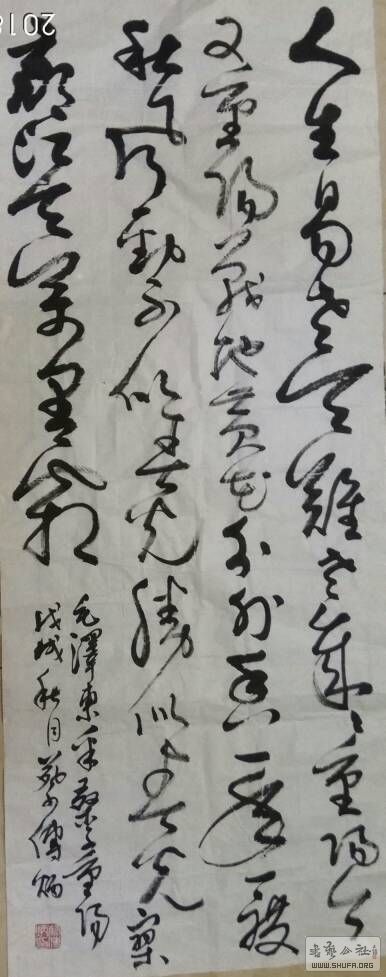 人生易老天難老歲々重陽今
又重陽戰地黄花分外香一年一度
秋風勁不似春光勝似春光寥
廓江天萬里霜
毛澤東采桑子重陽
戊戌秋月傅炳
2018
书艺公社
WWW.SHUFA.ORG